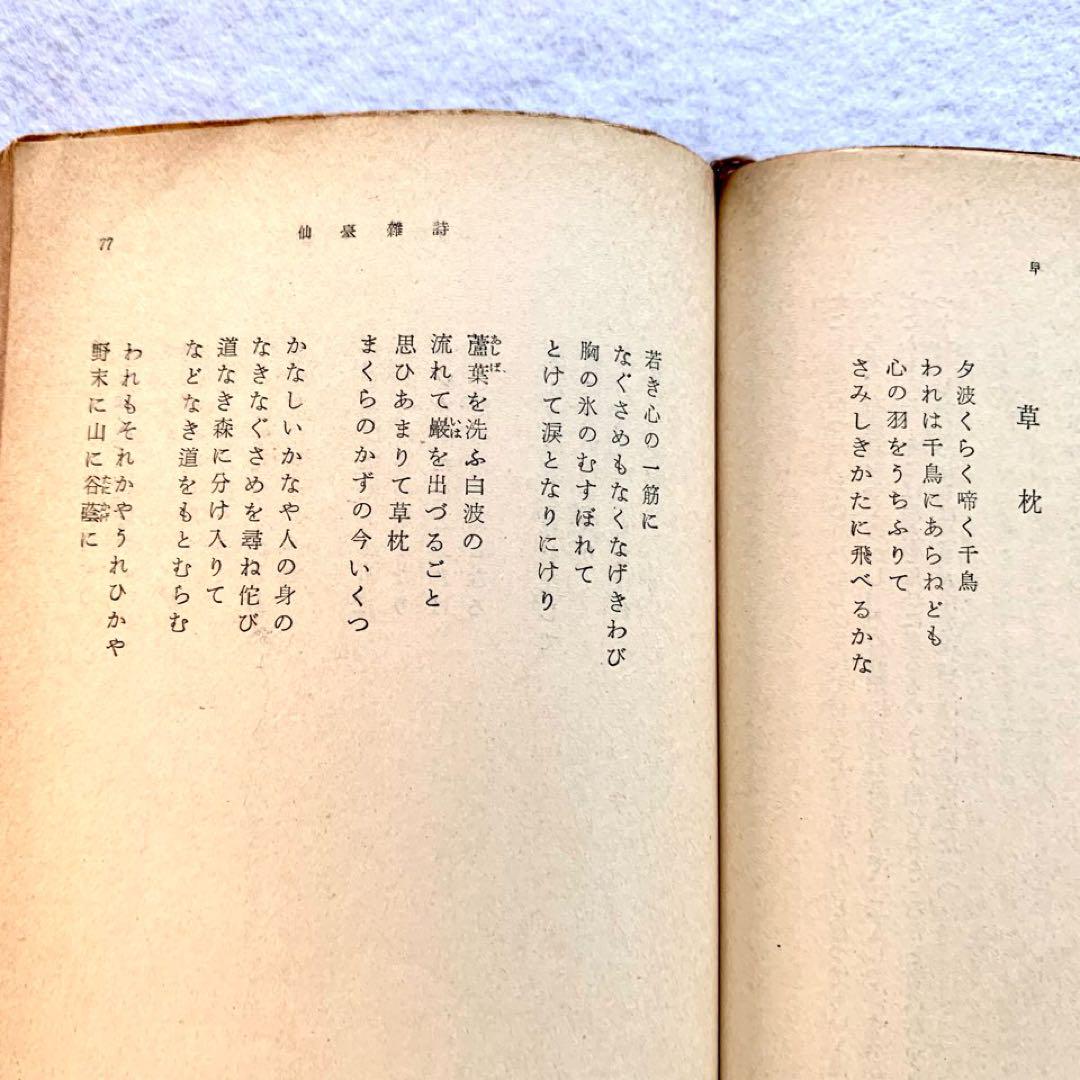 早
草枕
夕波くらく啼く千鳥
われは千鳥にあらねども
心の羽をうちふりて
さみしきかたに飛べるかな
仙臺雜詩
77
若き心の一筋に
なぐさめもなくなげきわび
胸の氷のむすぼれて
とけて涙となりにけり
蘆葉を洗ふ白波の
あしば
流れて巖を出づるごと
いは
思ひあまりて草枕
まくらのかずの今いくつ
かなしいかなや人の身の
なきなぐさめを尋ね侘び
道なき森に分け入りて
などなき道をもとむらむ
われもそれかやうれひかや
野末に山に谷蔭に